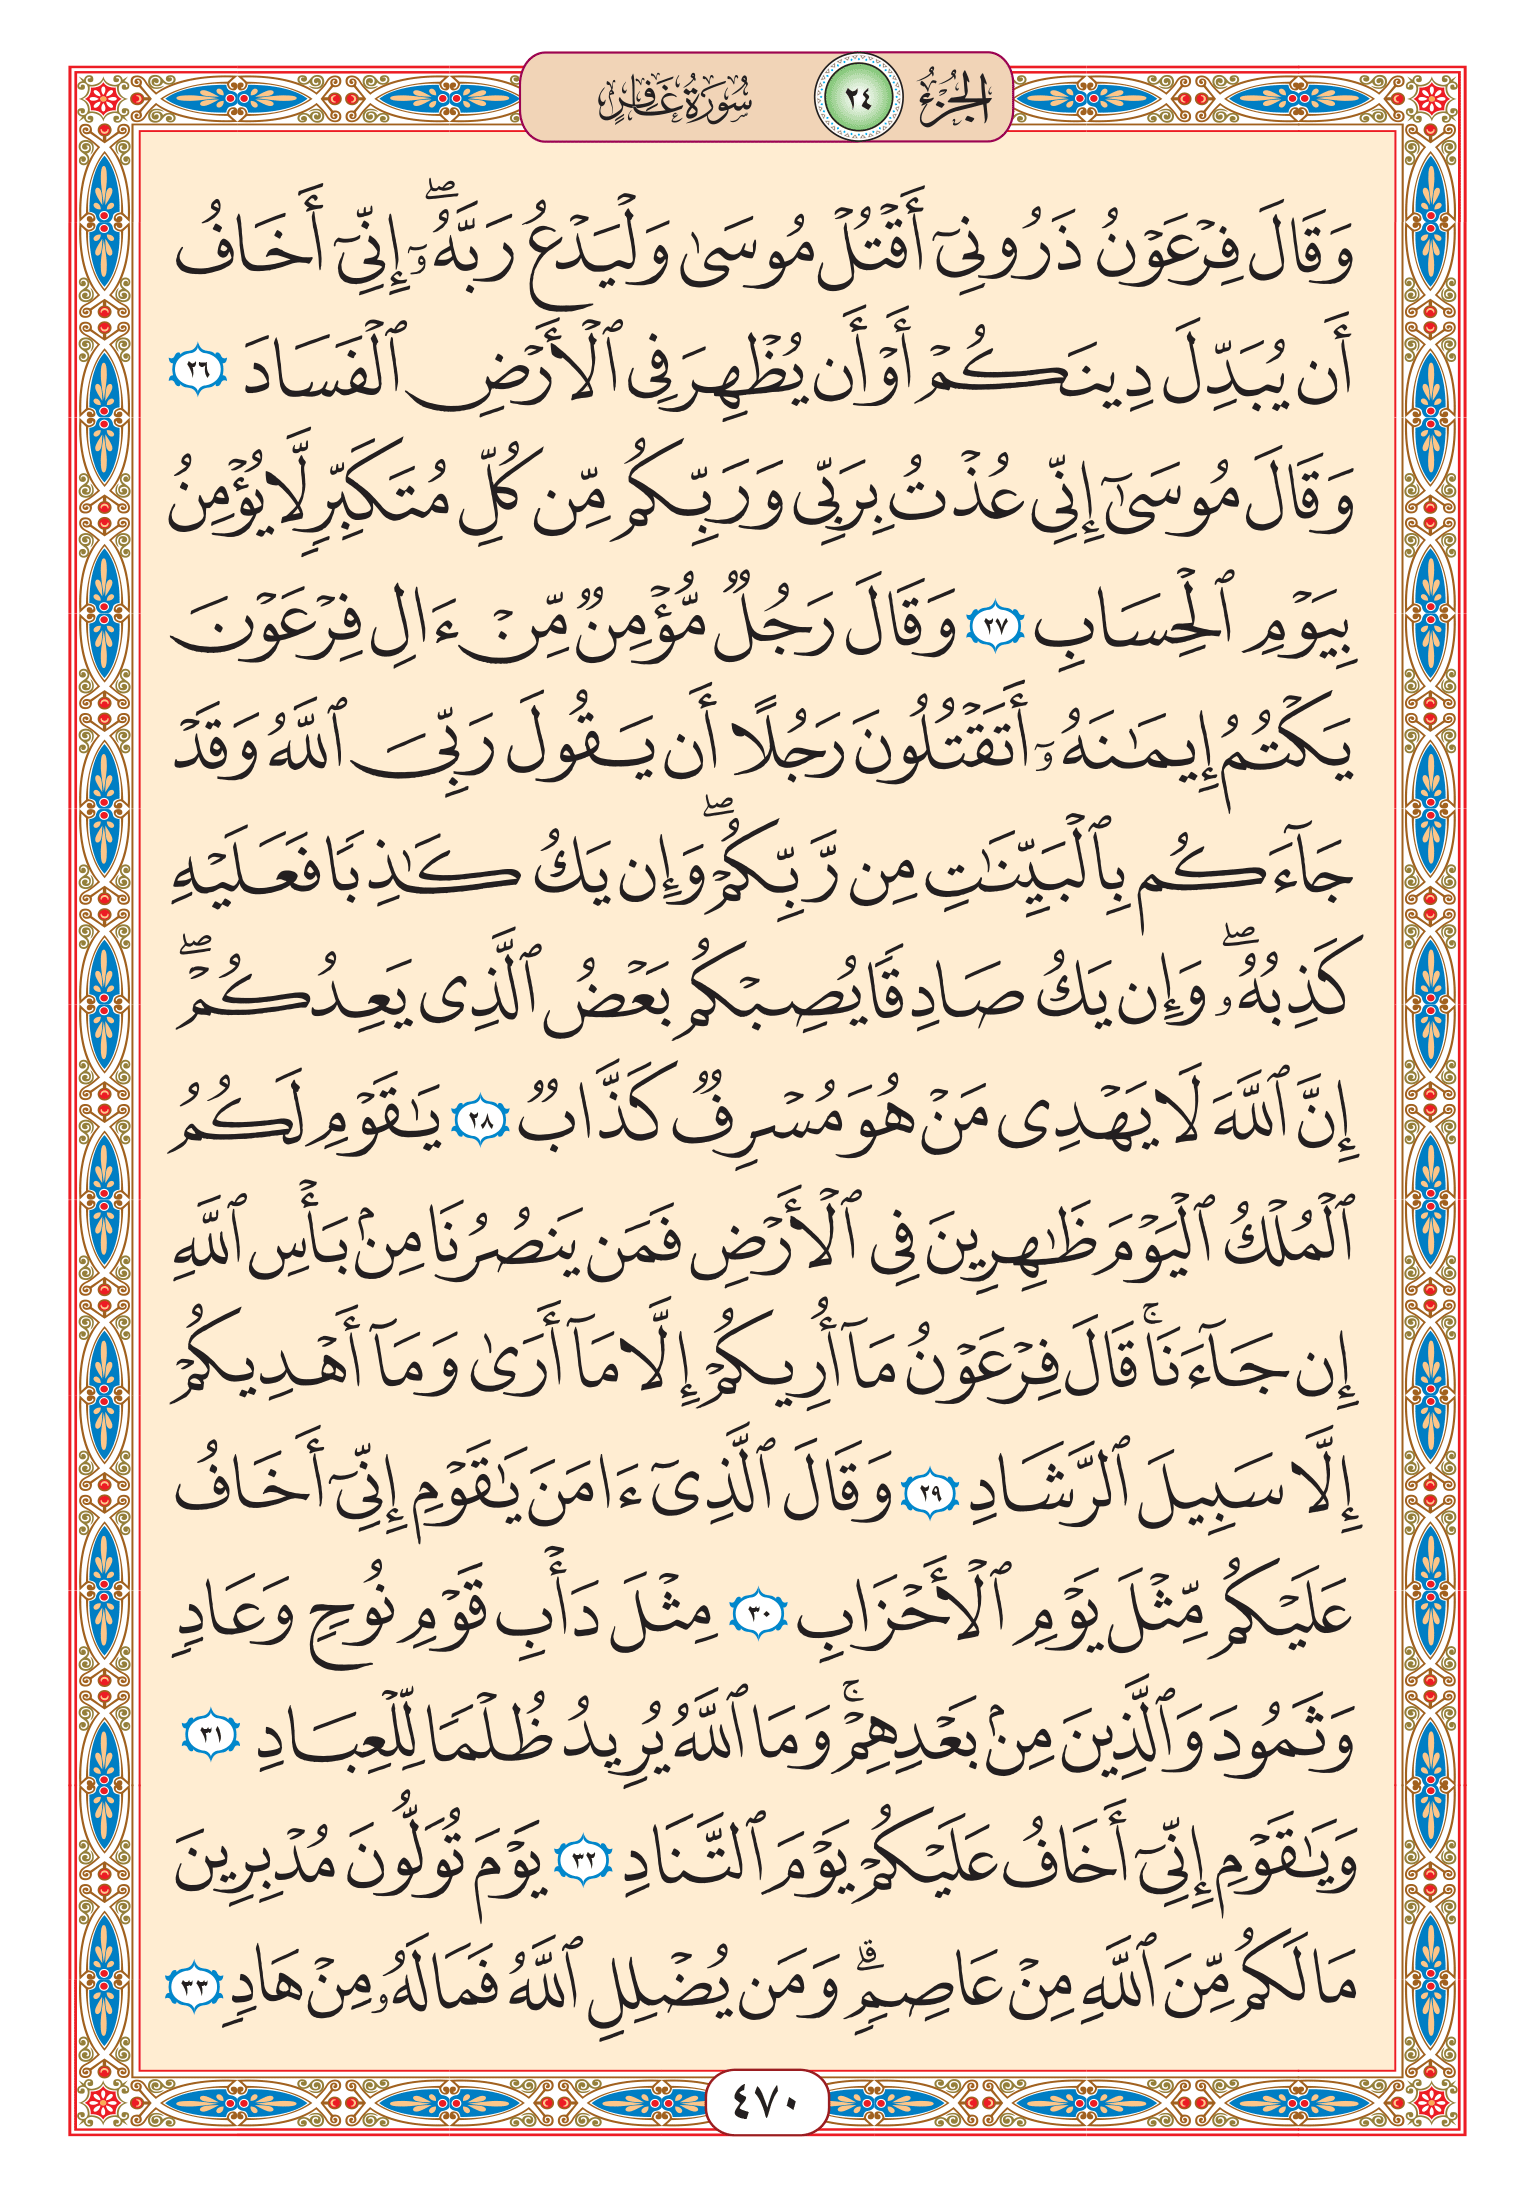 الجزء ٢٤ سورة غافر
وَقَالَ فِرْعَوْنُ ذَرُونِىٓ أَقْتُلْ مُوسَىٰ وَلْيَدْعُ رَبَّهُۥٓ ۖ إِنِّىٓ أَخَافُ
أَن يُبَدِّلَ دِينَكُمْ أَوْ أَن يُظْهِرَ فِى ٱلْأَرْضِ ٱلْفَسَادَ ٢٦
وَقَالَ مُوسَىٰٓ إِنِّى عُذْتُ بِرَبِّى وَرَبِّكُم مِّن كُلِّ مُتَكَبِّرٍ لَّا يُؤْمِنُ
بِيَوْمِ ٱلْحِسَابِ ٢٧ وَقَالَ رَجُلٌ مُّؤْمِنٌ مِّنْ ءَالِ فِرْعَوْنَ
يَكْتُمُ إِيمَٰنَهُۥٓ أَتَقْتُلُونَ رَجُلًا أَن يَقُولَ رَبِّىَ ٱللَّهُ وَقَدْ
جَآءَكُم بِٱلْبَيِّنَٰتِ مِن رَّبِّكُمْ ۖ وَإِن يَكُ كَٰذِبًا فَعَلَيْهِ
كَذِبُهُۥ ۖ وَإِن يَكُ صَادِقًا يُصِبْكُم بَعْضُ ٱلَّذِى يَعِدُكُمْ ۖ
إِنَّ ٱللَّهَ لَا يَهْدِى مَنْ هُوَ مُسْرِفٌ كَذَّابٌ ٢٨ يَٰقَوْمِ لَكُمُ
ٱلْمُلْكُ ٱلْيَوْمَ ظَٰهِرِينَ فِى ٱلْأَرْضِ فَمَن يَنصُرُنَا مِنۢ بَأْسِ ٱللَّهِ
إِن جَآءَنَا ۚ قَالَ فِرْعَوْنُ مَآ أُرِيكُمْ إِلَّا مَآ أَرَىٰ وَمَآ أَهْدِيكُمْ
إِلَّا سَبِيلَ ٱلرَّشَادِ ٢٩ وَقَالَ ٱلَّذِىٓ ءَامَنَ يَٰقَوْمِ إِنِّىٓ أَخَافُ
عَلَيْكُم مِّثْلَ يَوْمِ ٱلْأَحْزَابِ ٣٠ مِثْلَ دَأْبِ قَوْمِ نُوحٍ وَعَادٍ
وَثَمُودَ وَٱلَّذِينَ مِنۢ بَعْدِهِمْ ۚ وَمَا ٱللَّهُ يُرِيدُ ظُلْمًا لِّلْعِبَادِ ٣١
وَيَٰقَوْمِ إِنِّىٓ أَخَافُ عَلَيْكُمْ يَوْمَ ٱلتَّنَادِ ٣٢ يَوْمَ تُوَلُّونَ مُدْبِرِينَ
مَا لَكُم مِّنَ ٱللَّهِ مِنْ عَاصِمٍ ۗ وَمَن يُضْلِلِ ٱللَّهُ فَمَا لَهُۥ مِنْ هَادٍ ٣٣
٤٧٠